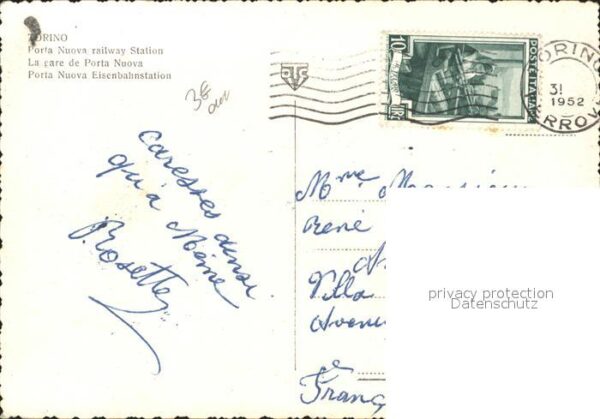 TORINO
Porta Nuova railway Station
La gare de Porta Nuova
Porta Nuova Eisenbahnstation
10
POSTE ITALIANE
LIRE
TORINO
31
1952
FERROVIA
caresses ainsi
qu'à Mème
Rosette
Mme Monsieur
René
Villa
Avenue
Franc
privacy protection
Datenschutz